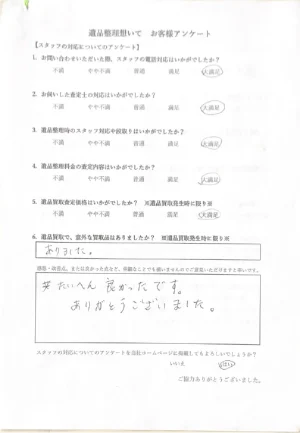 遺品整理想いて お客様アンケート
【スタッフの対応についてのアンケート】
1. お問い合わせいただいた際、スタッフの電話対応はいかがでしたか？
不満 やや不満 普通 満足 大満足
2. お伺いした査定士の対応はいかがでしたか？
不満 やや不満 普通 満足 大満足
3. 遺品整理時のスタッフ対応や段取りはいかがでしたか？
不満 やや不満 普通 満足 大満足
4. 遺品整理料金の査定内容はいかがでしたか？
不満 やや不満 普通 満足 大満足
5. 遺品買取査定価格はいかがでしたか？ ※遺品買取発生時に限り※
不満 やや不満 普通 満足 大満足
6. 遺品買取で、意外な買取品はありましたか？ ※遺品買取発生時に限り※
ありました。
感想・改善点、または良かった点など、些細なことでも構いませんのでご意見いただけますと幸いです。
たいへん 良かったです。
ありがとうございました。
スタッフの対応についてのアンケートを当社ホームページに掲載してもよろしいでしょうか？
いいえ はい
ご協力ありがとうございました。